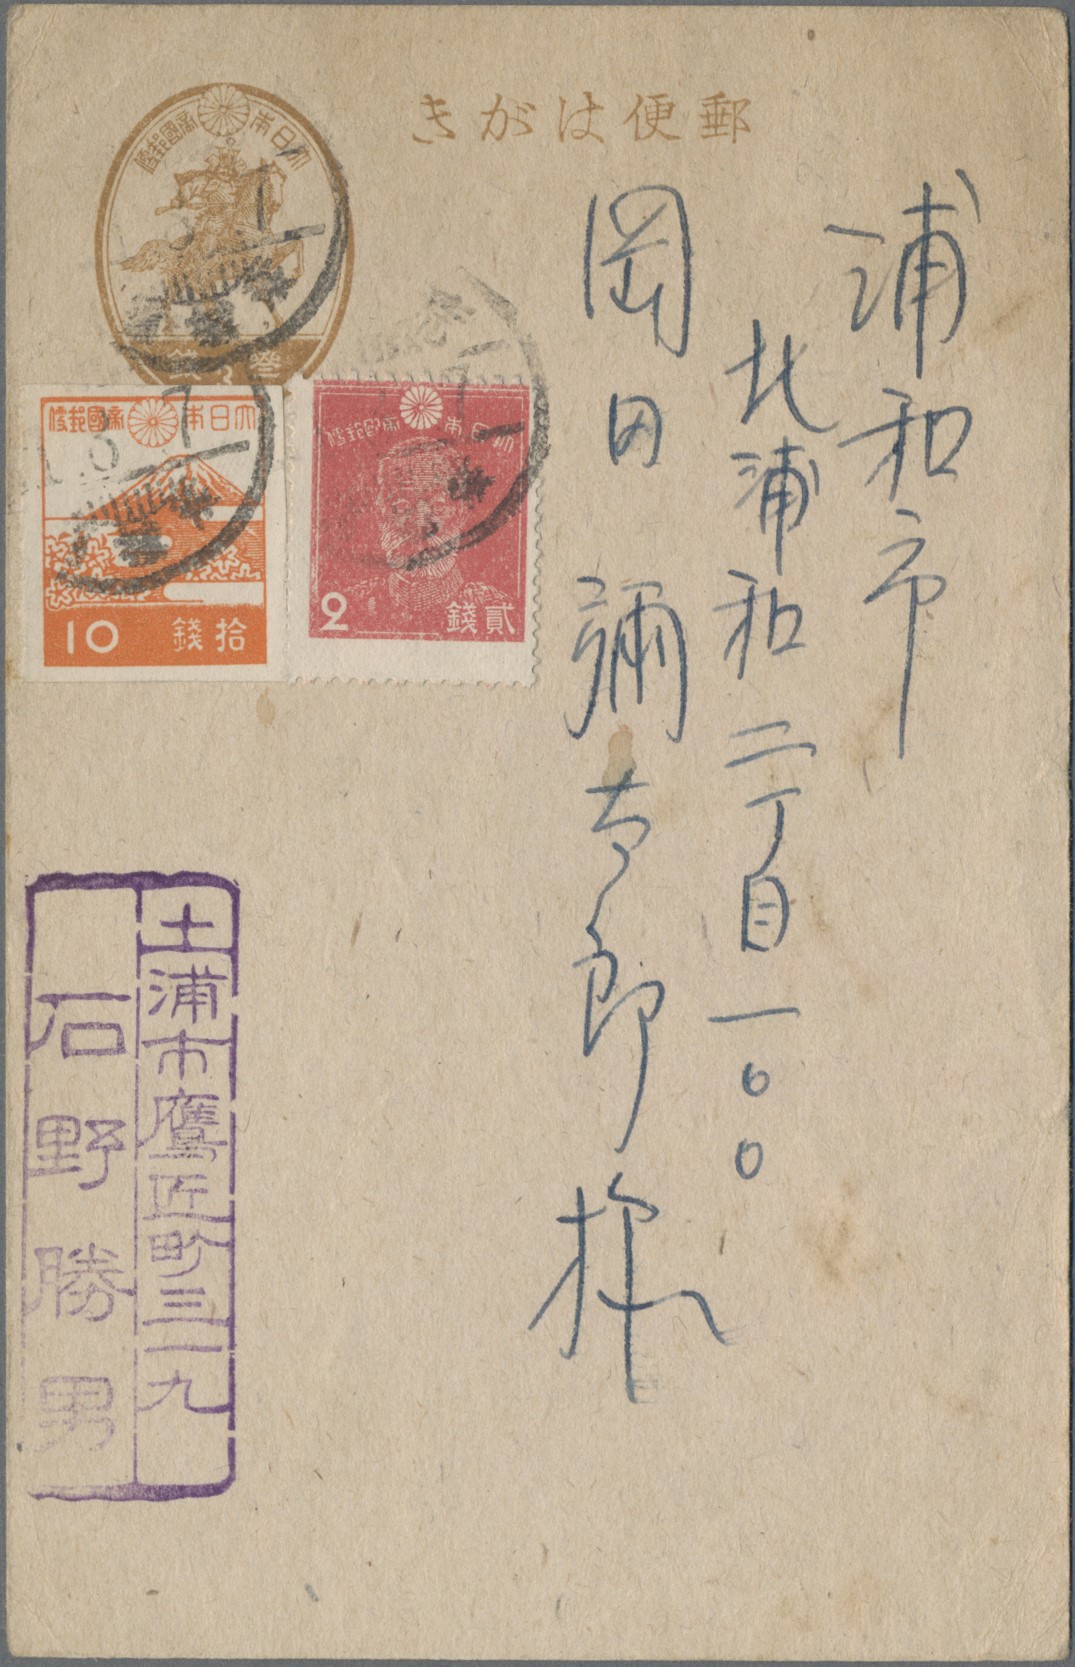 郵便はがき
大日本帝國郵便
大日本帝國郵便
拾錢
10
大日本帝國郵便
貳錢
2
浦和市
北浦和二丁目一〇〇
岡田彌太郎様
土浦市鷹匠町三一九
石野勝男